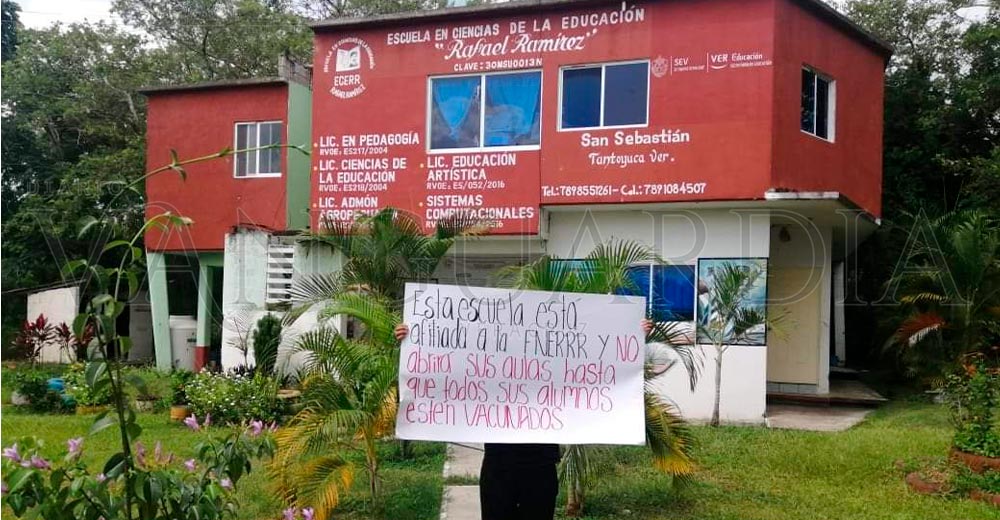 ESCUELA EN CIENCIAS DE LA EDUCACIÓN
"Rafael Ramírez"
CLAVE: 30MSU0013N
ECERR
RAFAEL RAMÍREZ
SEV
VER Educación
• LIC. EN PEDAGOGÍA
RVOE: ES217/2004
• LIC. CIENCIAS DE
LA EDUCACIÓN
RVOE: ES218/2004
• LIC. ADMÓN
AGROPECUARIA
• LIC. EDUCACIÓN
ARTÍSTICA
RVOE: ES/052/2016
• SISTEMAS
COMPUTACIONALES
San Sebastián
Tantoyuca Ver.
Tel.: 7898551261 - Cel.: 7891084507
VANGUARDIA
Esta escuela está
afiliada a la FNERRR y NO
abrirá sus aulas hasta
que todos sus alumnos
estén VACUNADOS